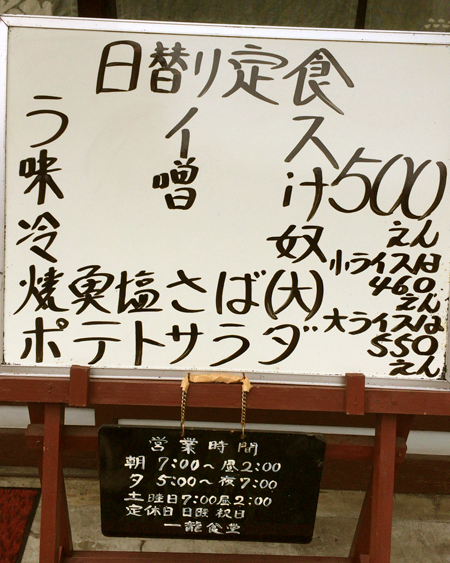 日替り定食
う イ ス
味 噌 汁
冷 奴
焼魚塩さば(大)
ポテトサラダ
500
えん
小ライスは
460
えん
大ライスは
550
えん
営業時間
朝 7:00〜昼2:00
夕 5:00〜夜7:00
土曜日7:00昼2:00
定休日 日曜 祝日
一龍食堂